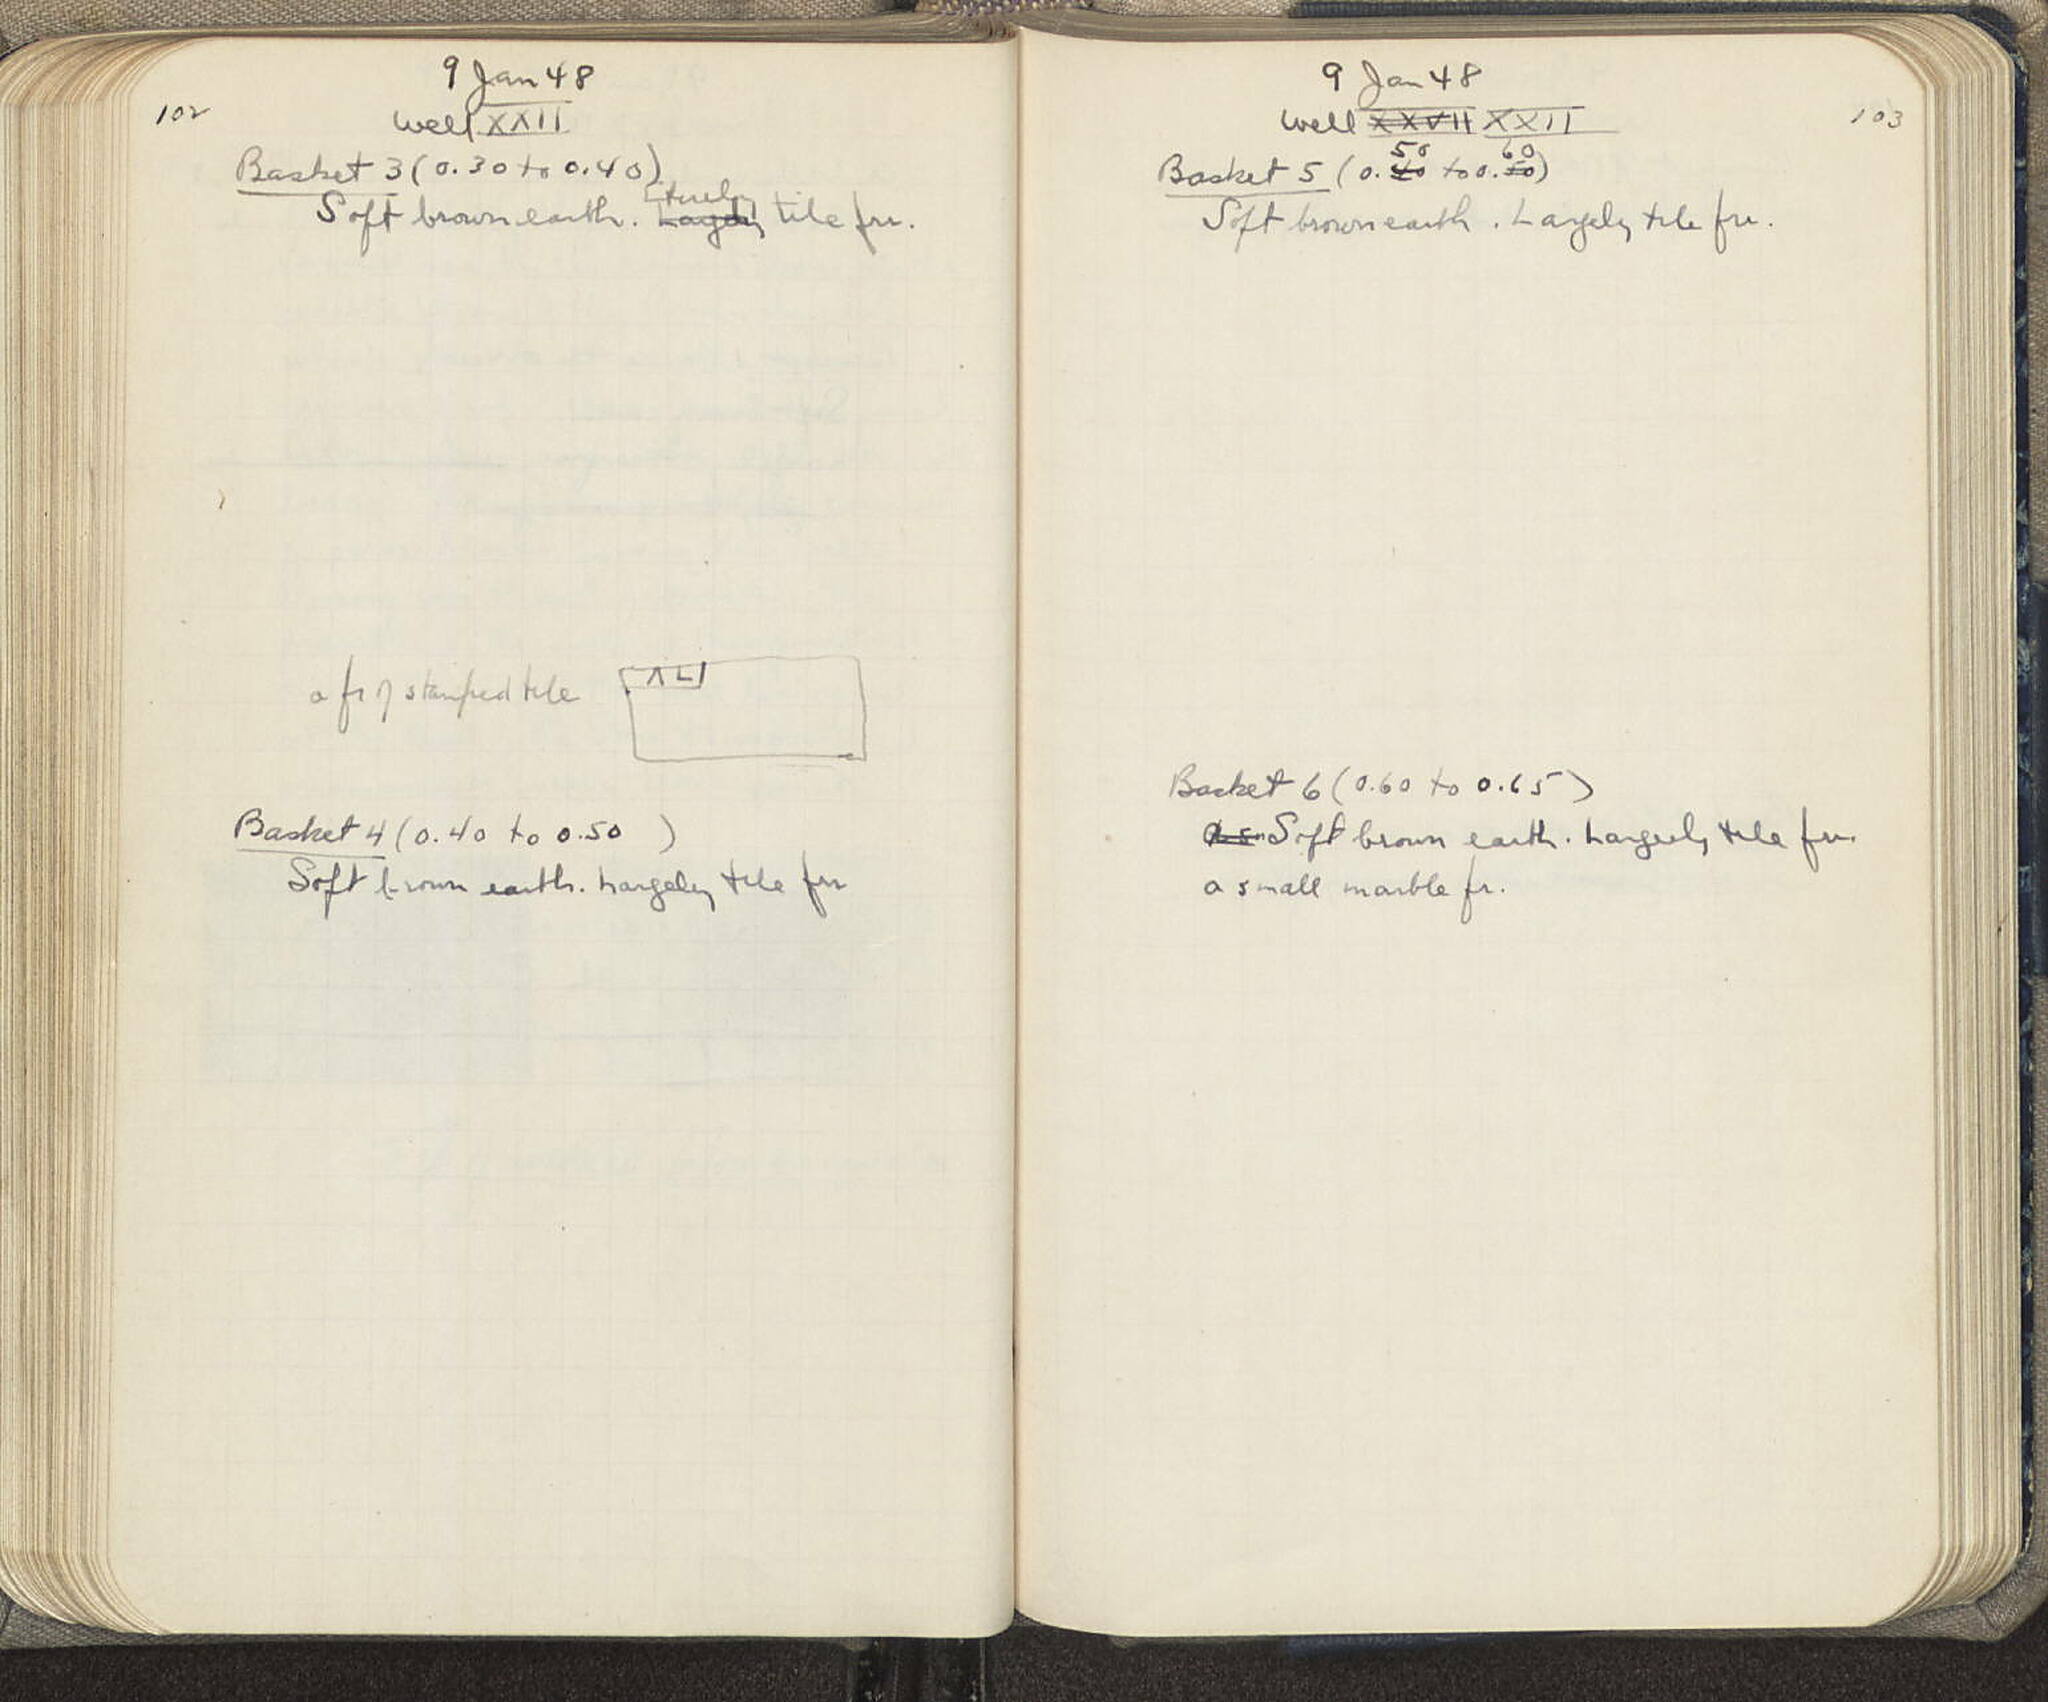 102
9 Jan 48
Well XXII
Basket 3 (0.30 to 0.40)
Soft brown earth. Largely tile frr.
a fr of stamped tile
Basket 4 (0.40 to 0.50 )
Soft brown earth. Largely tile frr
103
9 Jan 48
Well XXVII XXII
50 60
Basket 5 (0.40 to 0.50)
Soft brown earth. Largely tile frr.
Basket 6 (0.60 to 0.65)
Soft brown earth. Largely tile frr.
a small marble fr.